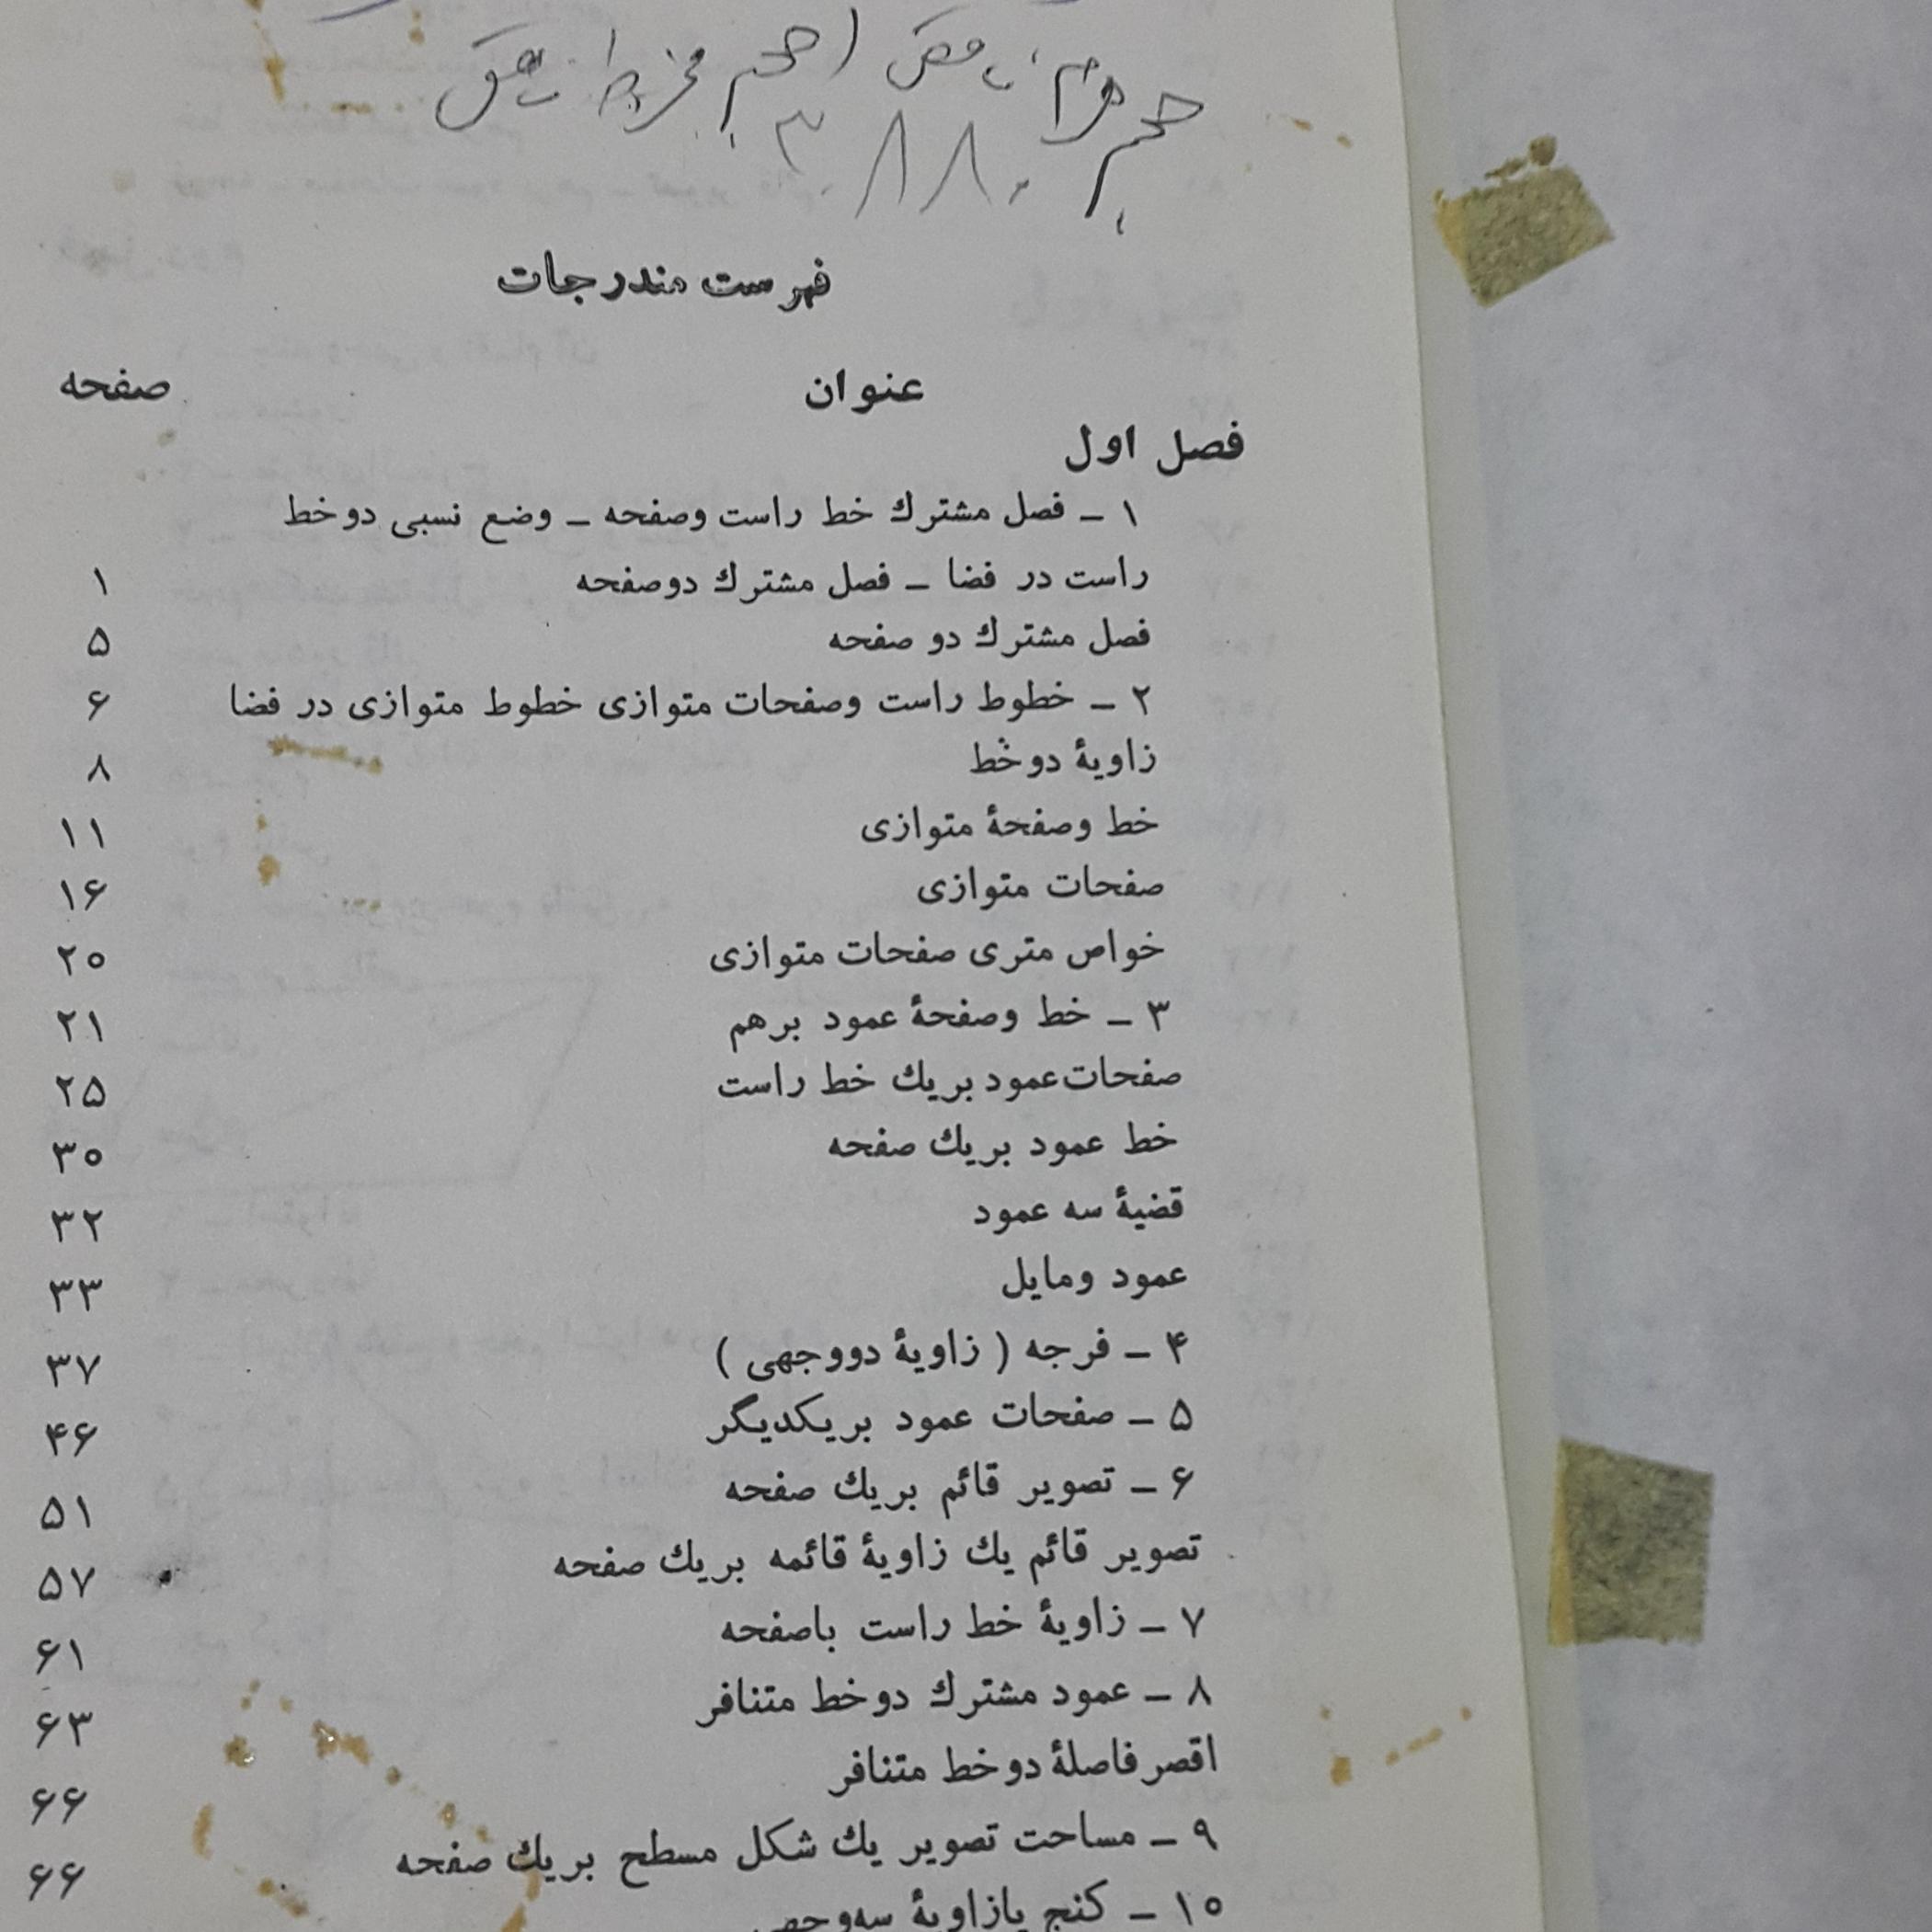 حجم هرم ناقص (حجم مخروط ناقص
۳۸۸۰
فهرست مندرجات
عنوان صفحه
فصل اول
۱ – فصل مشترك خط راست وصفحه – وضع نسبی دوخط
راست در فضا – فصل مشترك دوصفحه ۱
فصل مشترك دو صفحه ۵
۲ – خطوط راست وصفحات متوازی خطوط متوازی در فضا ۶
زاویهٔ دوخط ۸
خط وصفحهٔ متوازی ۱۱
صفحات متوازی ۱۶
خواص متری صفحات متوازی ۲۰
۳ – خط وصفحهٔ عمود برهم ۲۱
صفحات عمود بریك خط راست ۲۵
خط عمود بریك صفحه ۳۰
قضیهٔ سه عمود ۳۲
عمود ومایل ۳۳
۴ – فرجه ( زاویهٔ دووجهی ) ۳۷
۵ – صفحات عمود بریکدیگر ۴۶
۶ – تصویر قائم بریك صفحه ۵۱
تصویر قائم یك زاویهٔ قائمه بریك صفحه ۵۷
۷ – زاویهٔ خط راست باصفحه ۶۱
۸ – عمود مشترك دوخط متنافر ۶۳
اقصرفاصلهٔ دوخط متنافر ۶۶
۹ – مساحت تصویر یك شکل مسطح بریك صفحه ۶۶
۱۰ – کنج یازاویهٔ سه‌وجهی